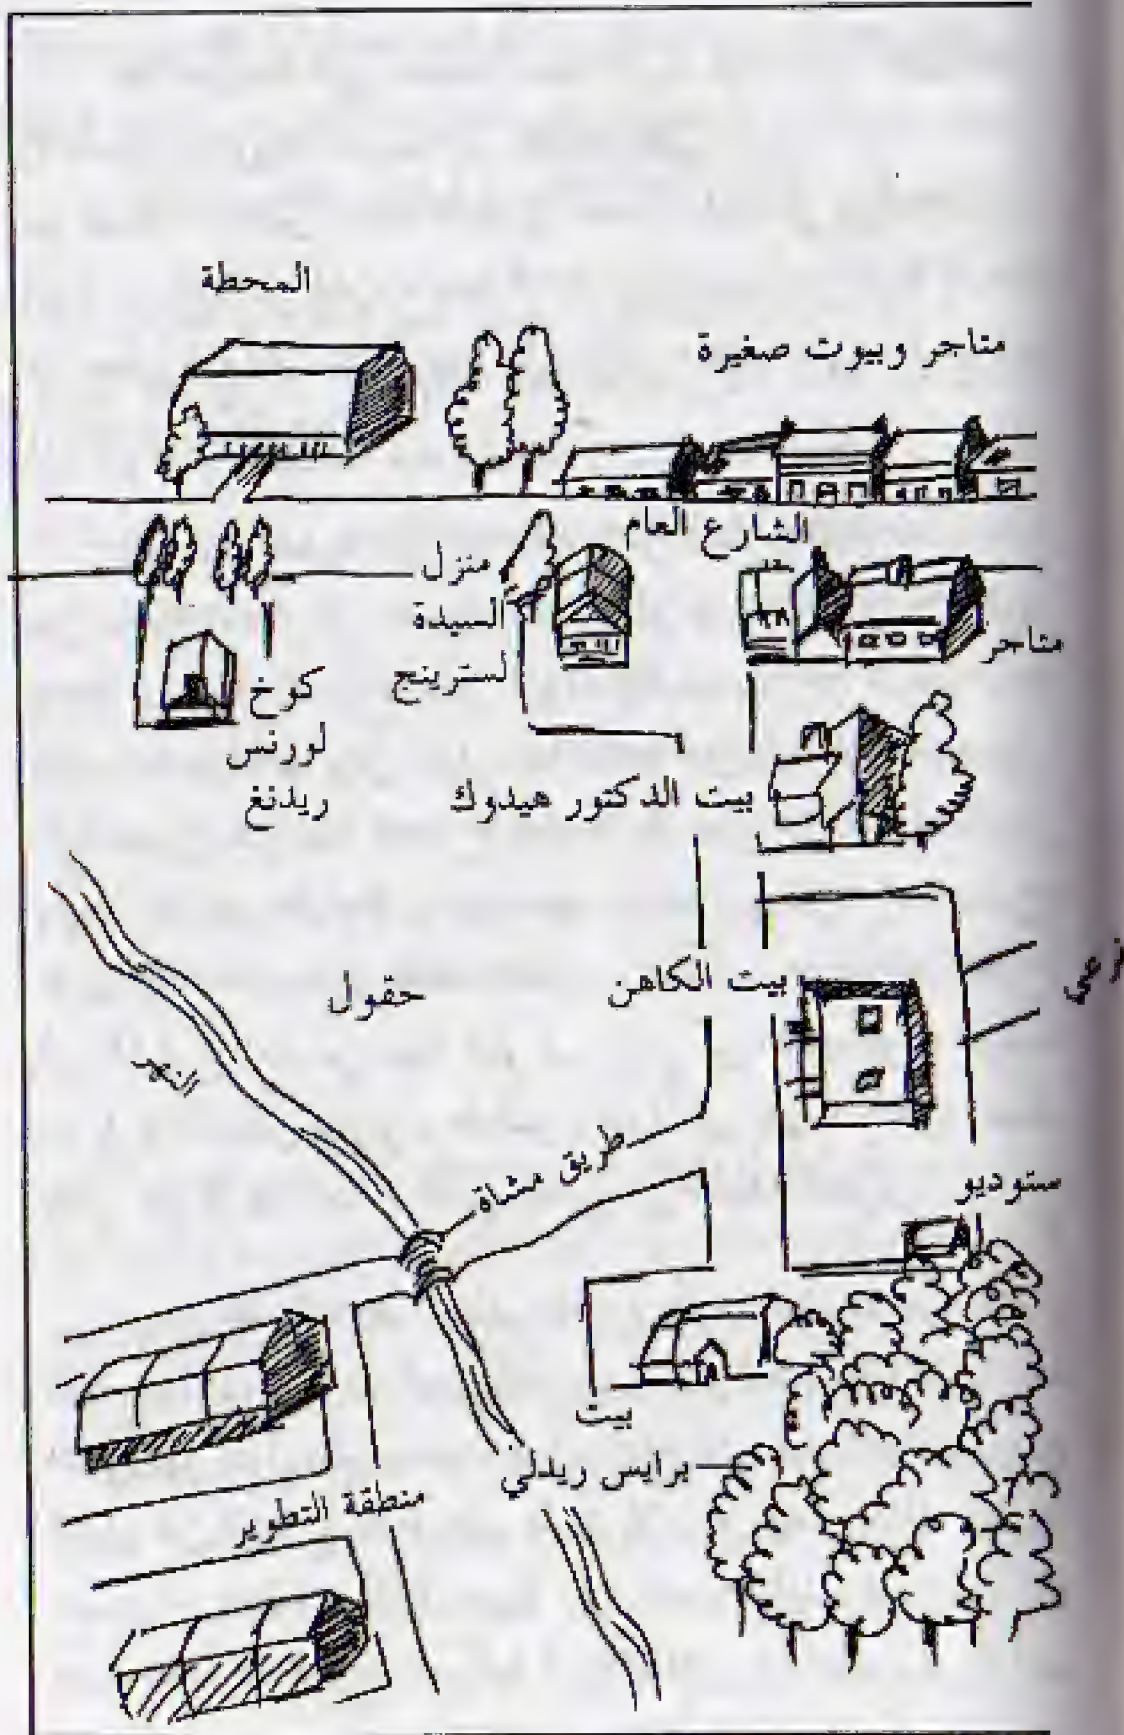 المحطة
متاجر وبيوت صغيرة
الشارع العام
منزل
السيدة
لسترينج
متاجر
كوخ
لورنس
ريدنغ
بيت الدكتور هيدوك
حقول
بيت الكاهن
النهر
طريق مشاة
ستوديو
بيت
برايس ريدلي
منطقة التطوير